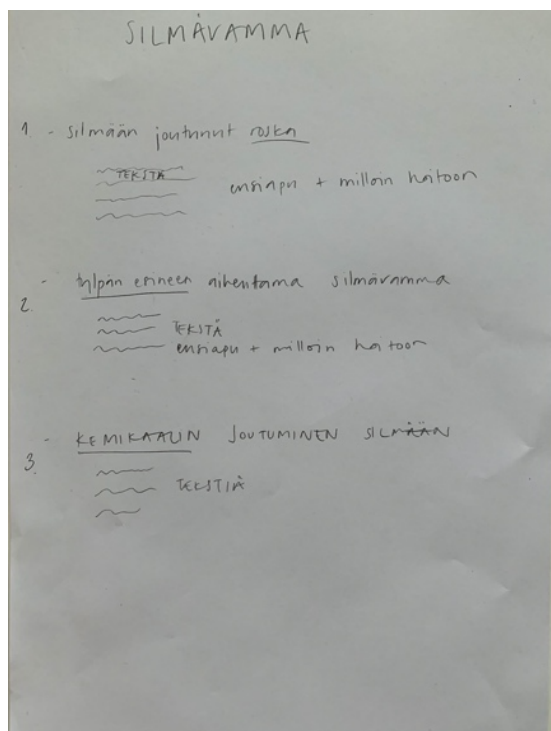 SILMÄVAMMA
1. - silmään joutunut roska
TEKSTÄ
ensiapu + milloin hoitoon
2. - tylpän esineen aiheuttama silmävamma
TEKSTÄ
ensiapu + milloin hoitoon
3. - KEMIKAALIN JOUTUMINEN SILMÄÄN
TEKSTIÄ